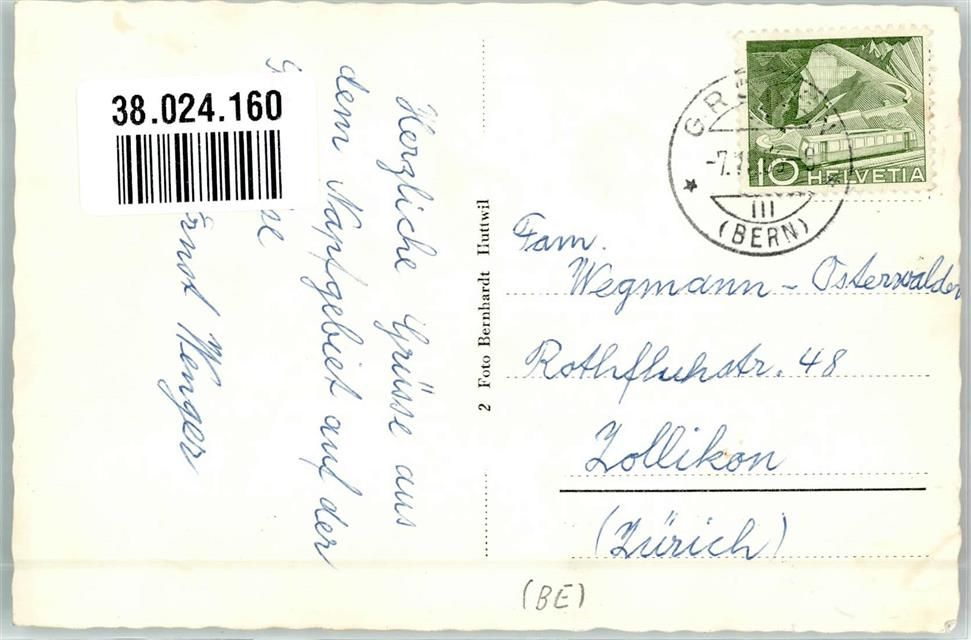 38.024.160
Herzliche Grüsse aus
dem Napfgebiet auf der
Wenger
2 Foto Bernhardt Huttwil
10 HELVETIA
III
(BERN)
Fam.
Wegmann - Osterwalder
Rothfluhstr. 48
Zollikon
(Zürich)
(BE)